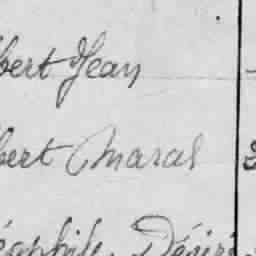 bert Jean
bert Maral
éophile Désiré